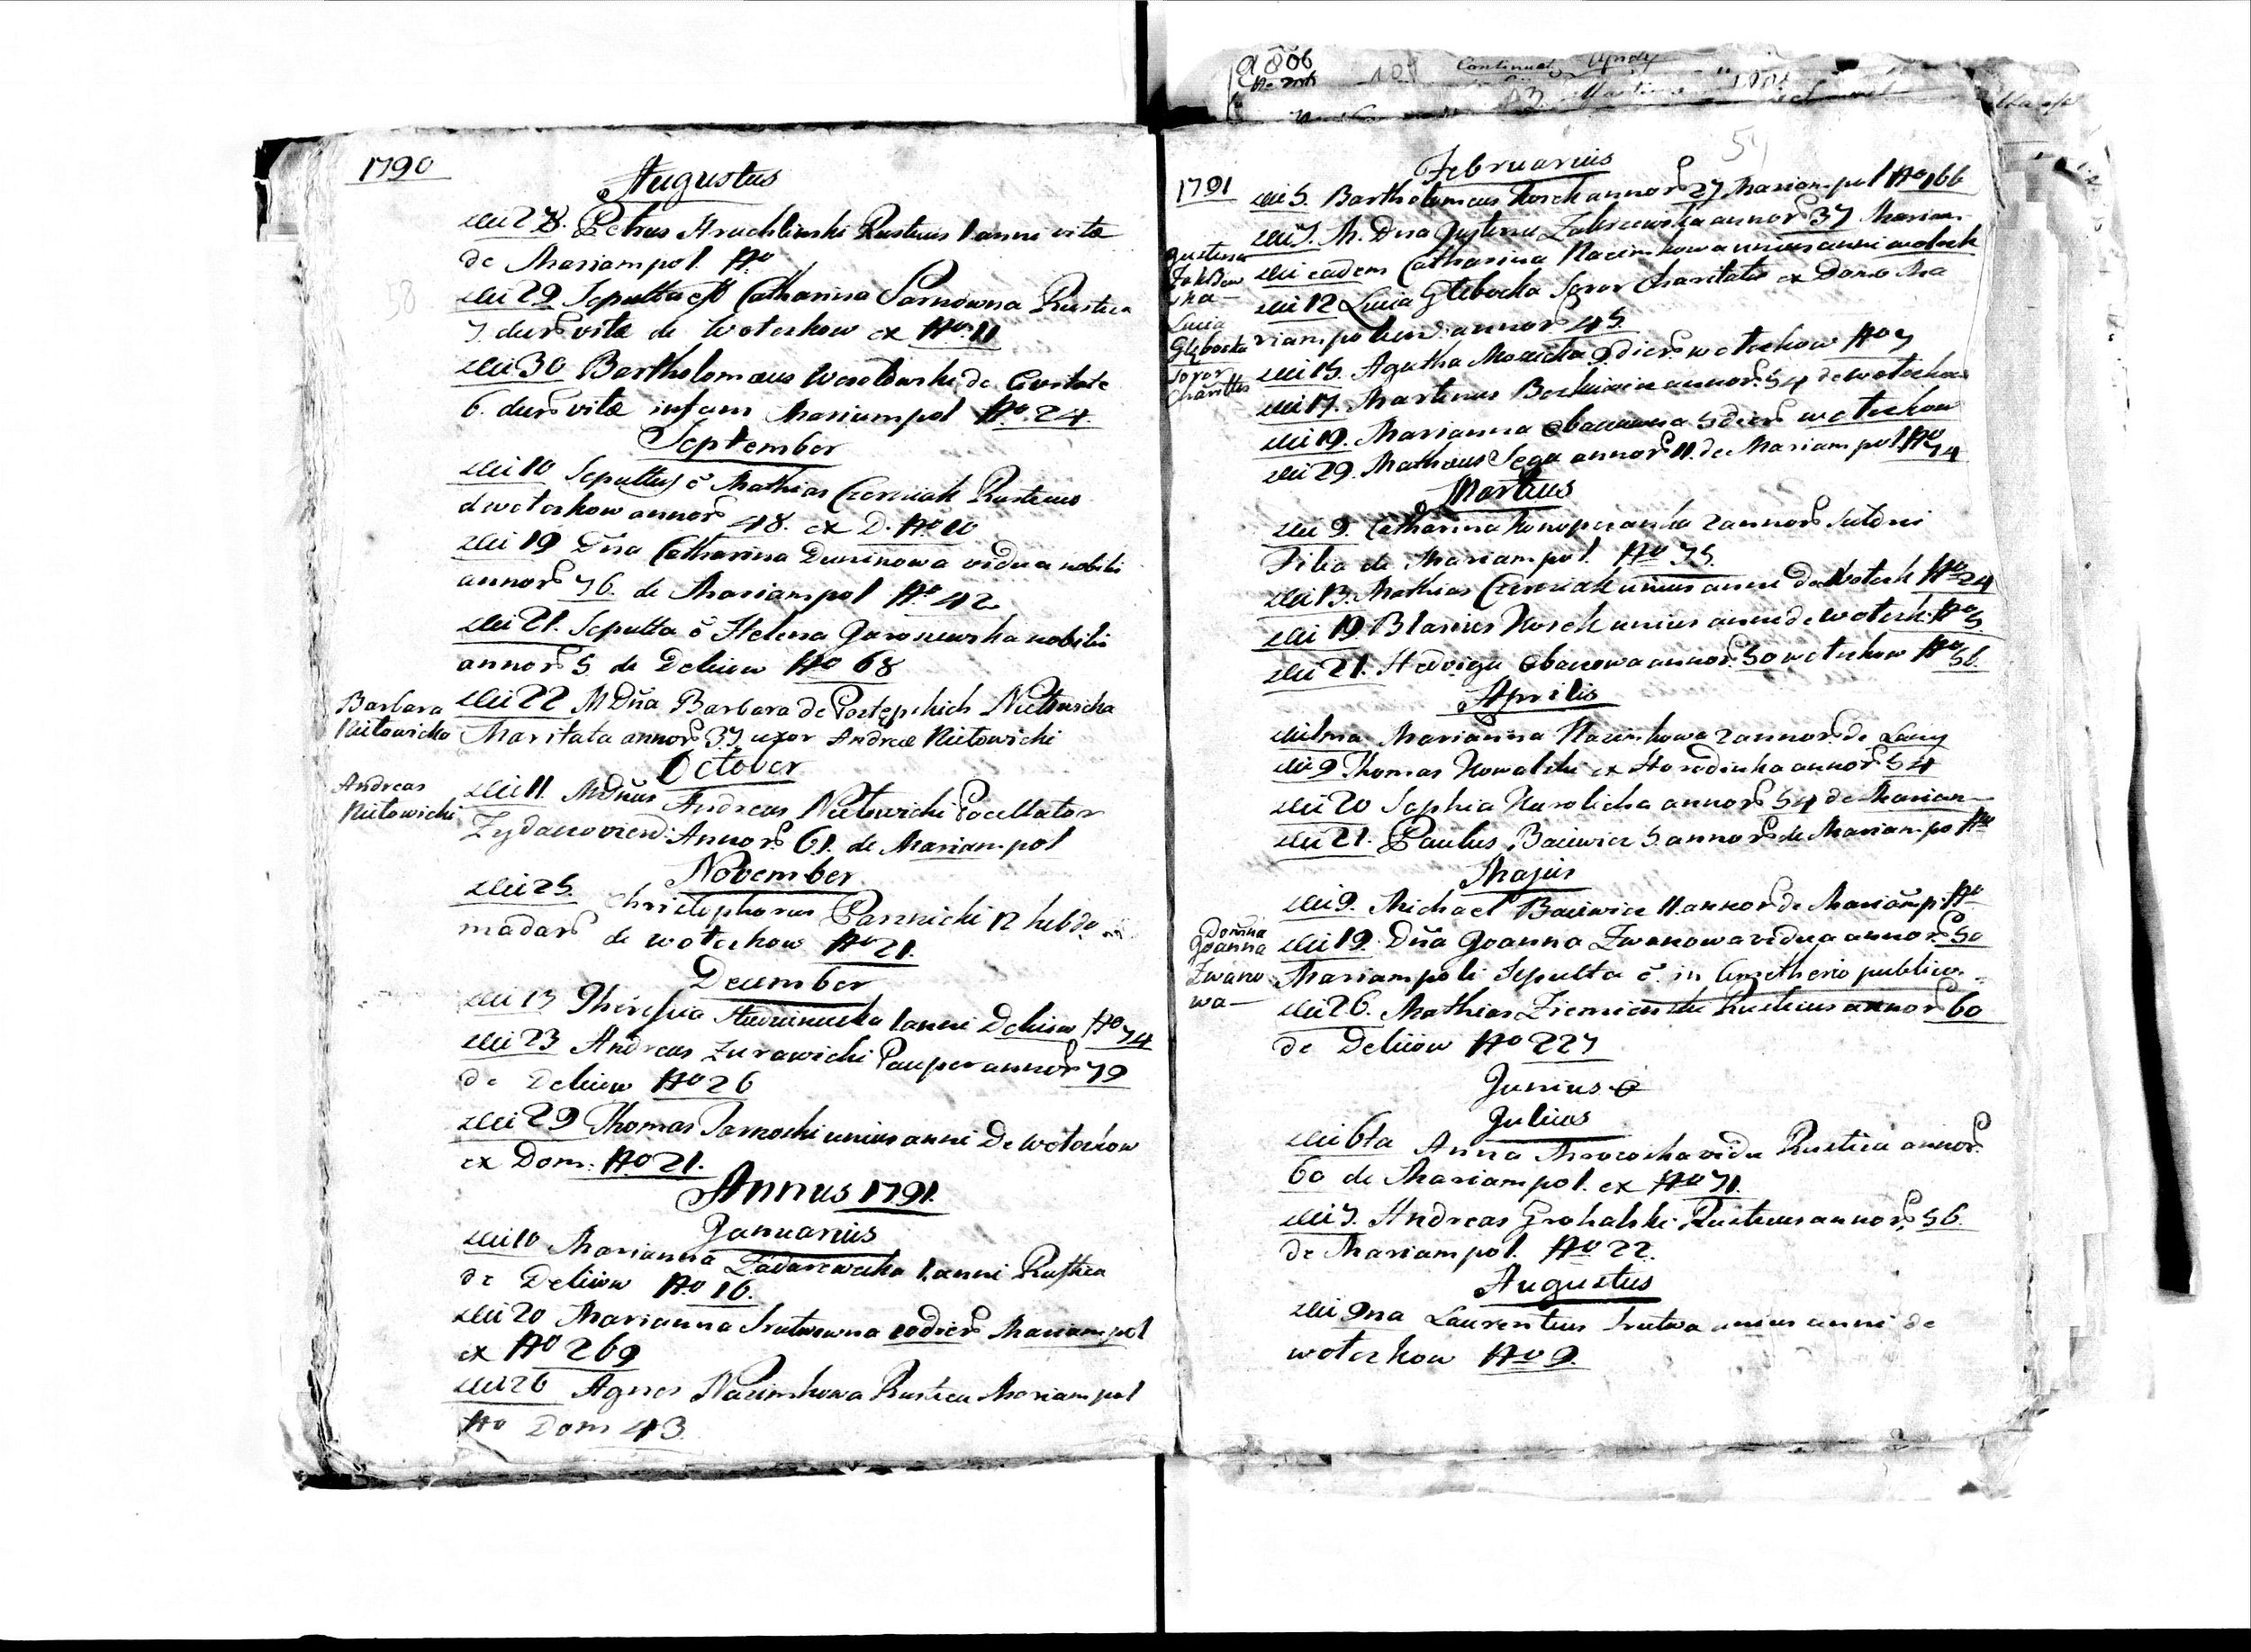 1790
Augustus
die 28. Petrus Hruchlinski Rusticus 1 anni vitæ
de Mariampol. No
die 29 Sepulta est Catharina Sarnowna Rustica
7. dier. vitæ de Wotczkow ex No. 11
die 30 Bartholomæus Wesołowski de Civitate
6. dier. vitæ infans Mariampol No. 24.
September
die 10 Sepultus ē Mathias Czerniak Rusticus
de Wotczkow annor. 48. ex D. No 10
die 19 Dña Catharina Duninowa vidua nobilis
annor. 76. de Mariampol No. 42
die 21. Sepulta ē Helena Goronewska nobilis
annor. 5 de Delieiow No 68
Barbara
Nietowicka
die 22 M Dña Barbara de Postępskich Nietowicka
Maritata annor. 37 uxor Andreæ Nietowicki
October
Andreas
Nietowicki
die 11. MDñus Andreas Nietowicki Pocillator
Zydaczoviens: Annor. 61. de Mariampol
November
die 25. Christophorus Pannicki 12 hebdo
madar. de wotczkow No 21.
December
die 13 Theresia 1 anni Deliiow No 74
die 23 Andreas Zurawicki Pauper annor. 79
de Deliiow No 26
die 29 Thomas Sarnocki unius anni De Wotczkow
ex Dom: No 21.
Annus 1791.
Januarius
die 10 Marianna 1. anni Rustica
de Deliiow No 16.
die 20 Marianna Krutwowna 10 dier. Mariampol
ex No 269
die 26 Agnes Nazimkowa Rustica Mariampol
No Dom 43
1791
Februarius
die 5. Bartholomeus Kosek annor. 27 Mariampol No 166
Justina
Zakrzew
ska
die 7. M. Dna Justina Zakrzewska annor. 37 Mariam
die eadem Catharina Nazimkowa unius anni wotczk
Lucia
Głębocka
Soror
Charittis
die 12 Lucia Głębocka Soror Charitatis ex Domo Ma
riampoliens. annor. 45.
die 15. Agatha Mozucka 9 dier. wotczkow No 7
die 17. Martinus annor. 54 de wotczkow
die 19. Marianna 5 dier. wotczkow
die 29. Matheus Sega annor. 11. de Mariampol. No 74
Martius
die 9. Catharina Konopczanka 2 annor. Sutoris
Filia de Mariampol. No 75.
die 13. Mathias Czerniak unius anni de Wotczk No 24
die 19. Blasius Kosek unius anni de wotczk. No 5.
die 21. Hedvigis annor. 50 wotczkow No 56.
Aprilis
die 1ma Marianna Nazimkowa 2 annor. de Lany
die 9 Thomas Kowalski ex Horodinka annor. 54
die 20 Sophia Karolicka annor. 54 de Mariam
die 21. Paulus Baiewicz 5 annor. de Mariampo No
Majus
die 9. Michael Baiewicz 11. annor. de Mariamp: No
Domina
Joanna
Iwano
wa
die 19. Dña Joanna Iwanowa vidua annor. 50
Mariampoli Sepulta ē. in Cæmetherio publico
die 26. Mathias Ziemianski Rusticus annor. 60
de Deliiow No 227
Junius
Julius
die 6ta Anna Mrozocka vidu Rustica annor.
60 de Mariampol. ex No 71.
die 7. Andreas Grohalski Rusticus annor. 56.
de Mariampol. No 22.
Augustus
die 9na Laurentius Krutwa unius anni de
wotczkow No 9.